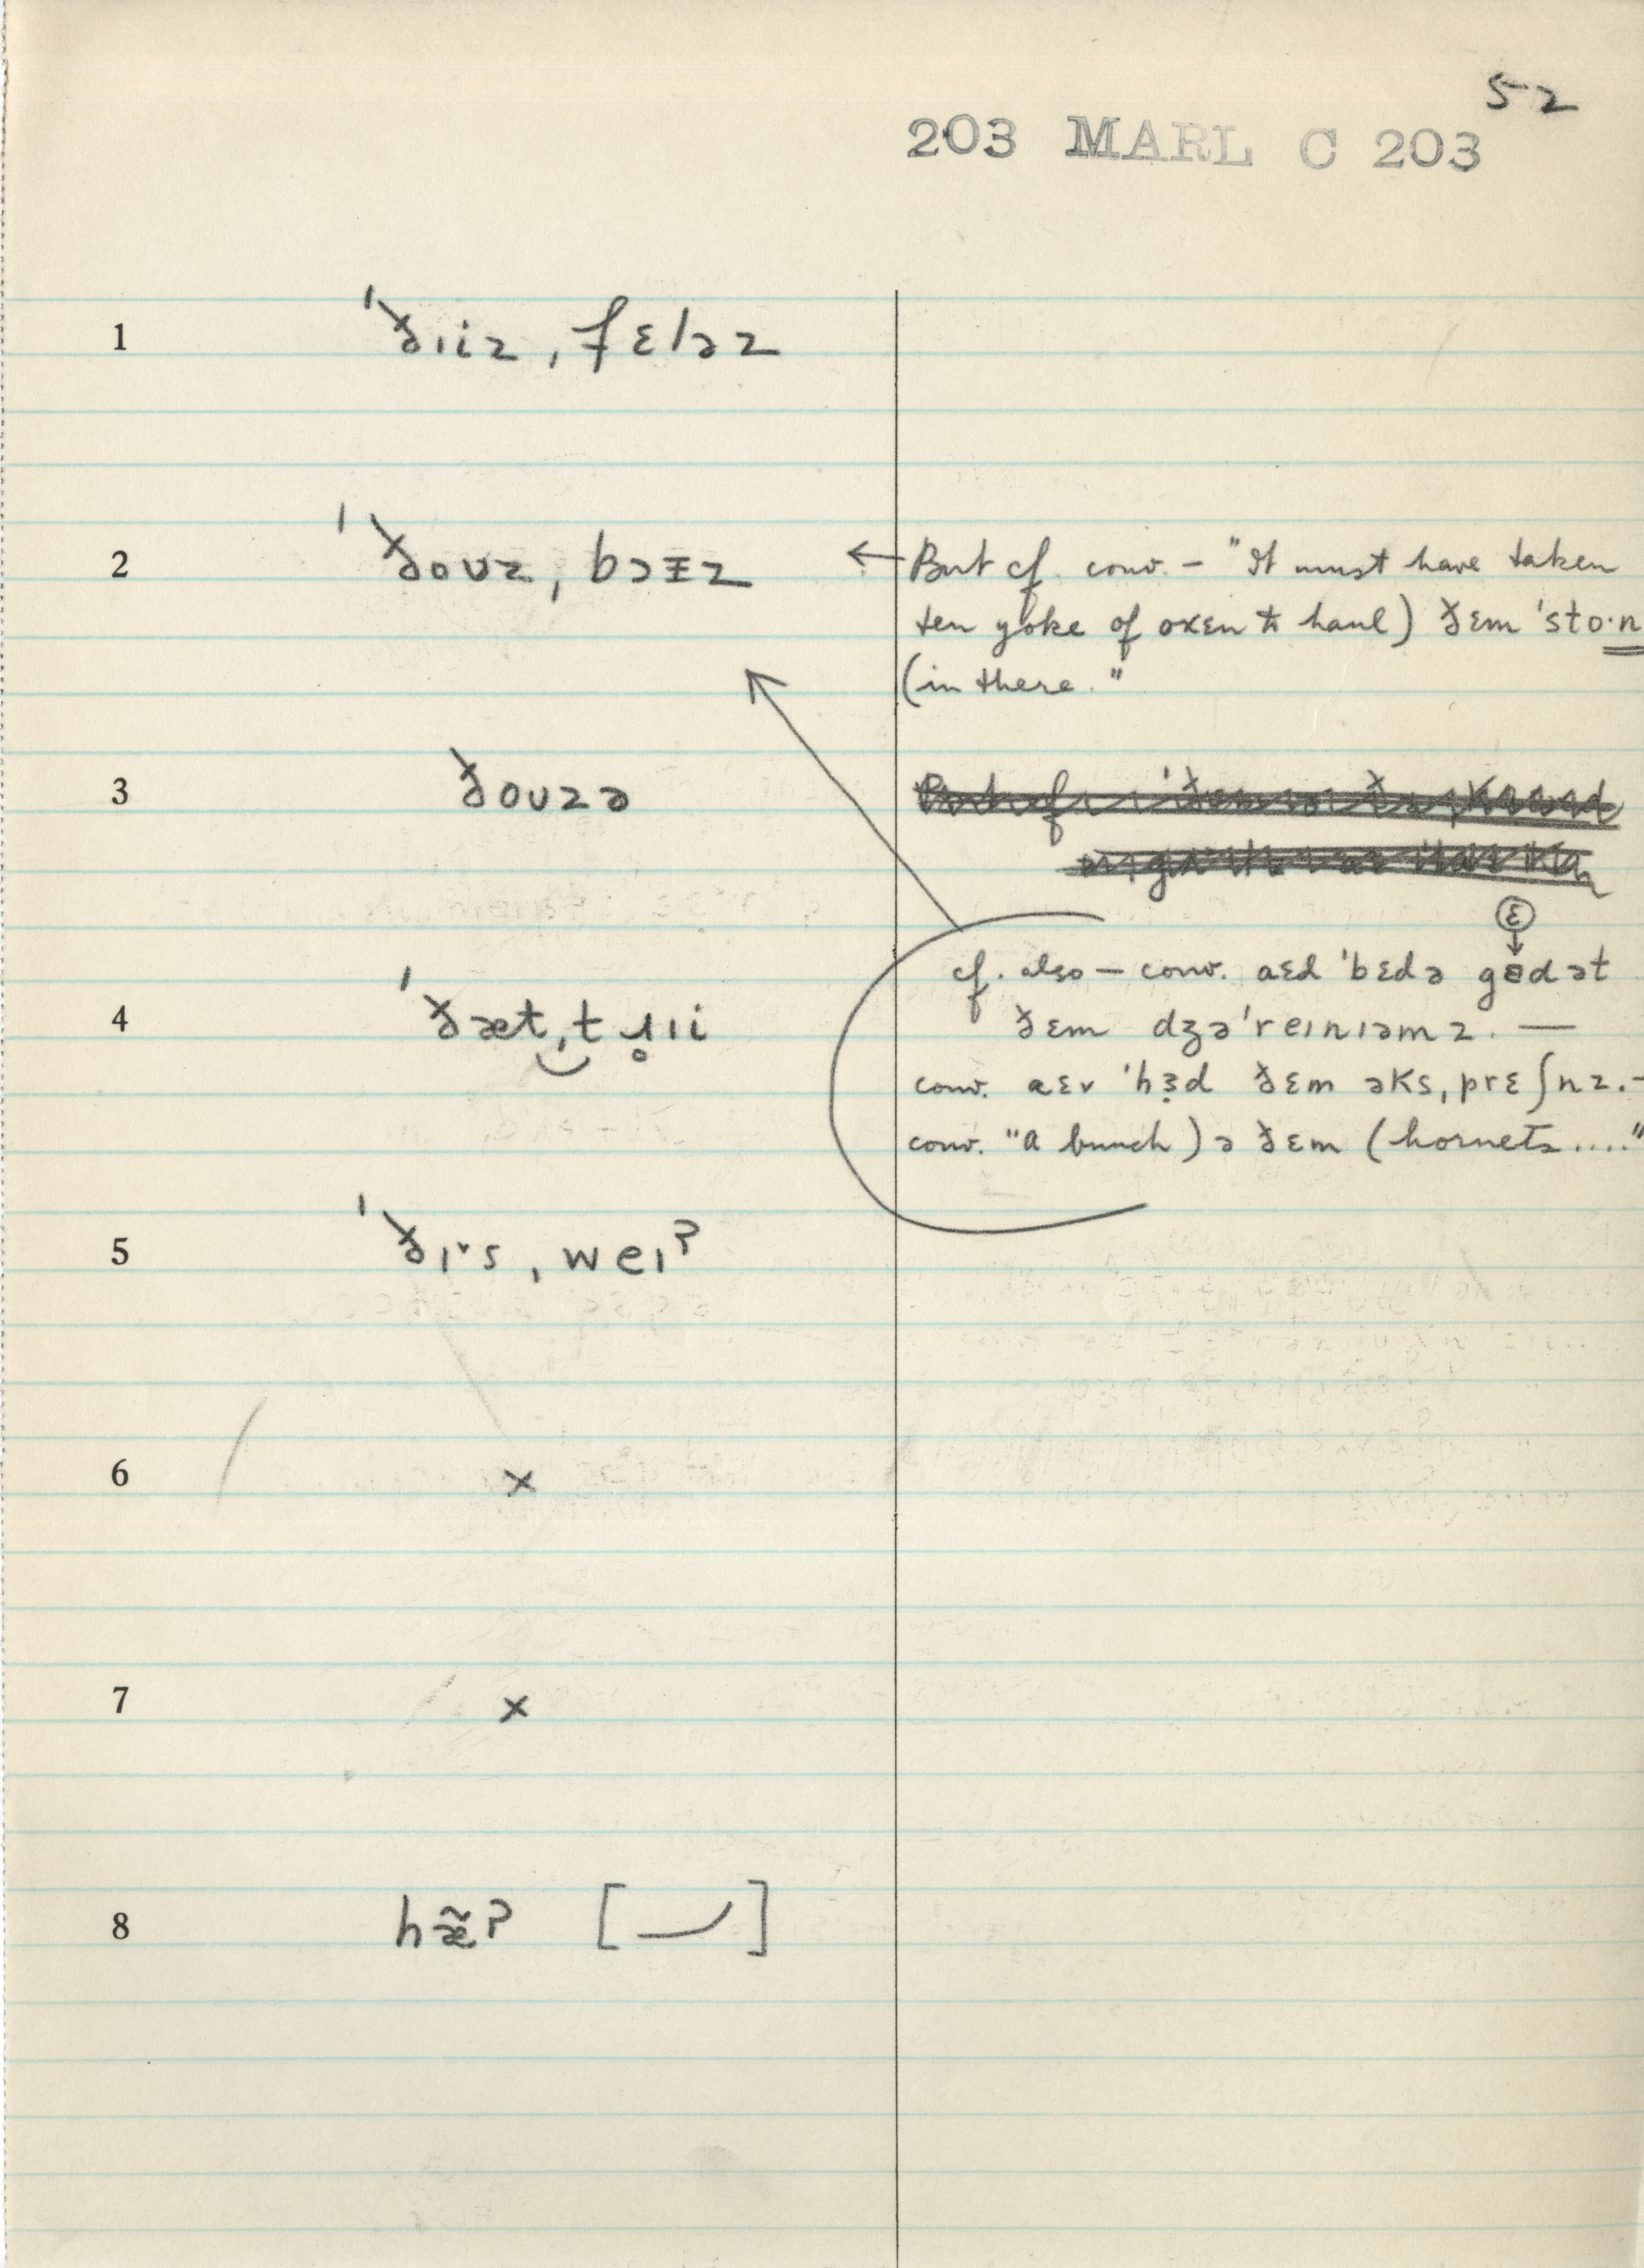 52
203 MARL C 203
1 ˈðɪiz ˌfɛləz
2 ˈðouz ˌbɔɪz ← But cf. conv. – "It must have taken
ten yoke of oxen to haul) ðɛm ˈsto·n
(in there."
3 ðouzə
ɛ
cf. also – conv. aɛd ˈbɛdə gɐdət
4 ˈðæt ˌtɹ̥ɪi
ðɛm dʒəˈreɪnɪəmz. —
conv. aɛv ˈhɜd ðɛm əksˌprɛʃnz. –
conv. "a bunch) ə ðɛm (hornets...."
5 ˈðɪ˞s ˌweɪ?
6 ×
7 ×
8 hæ̃? [ ]